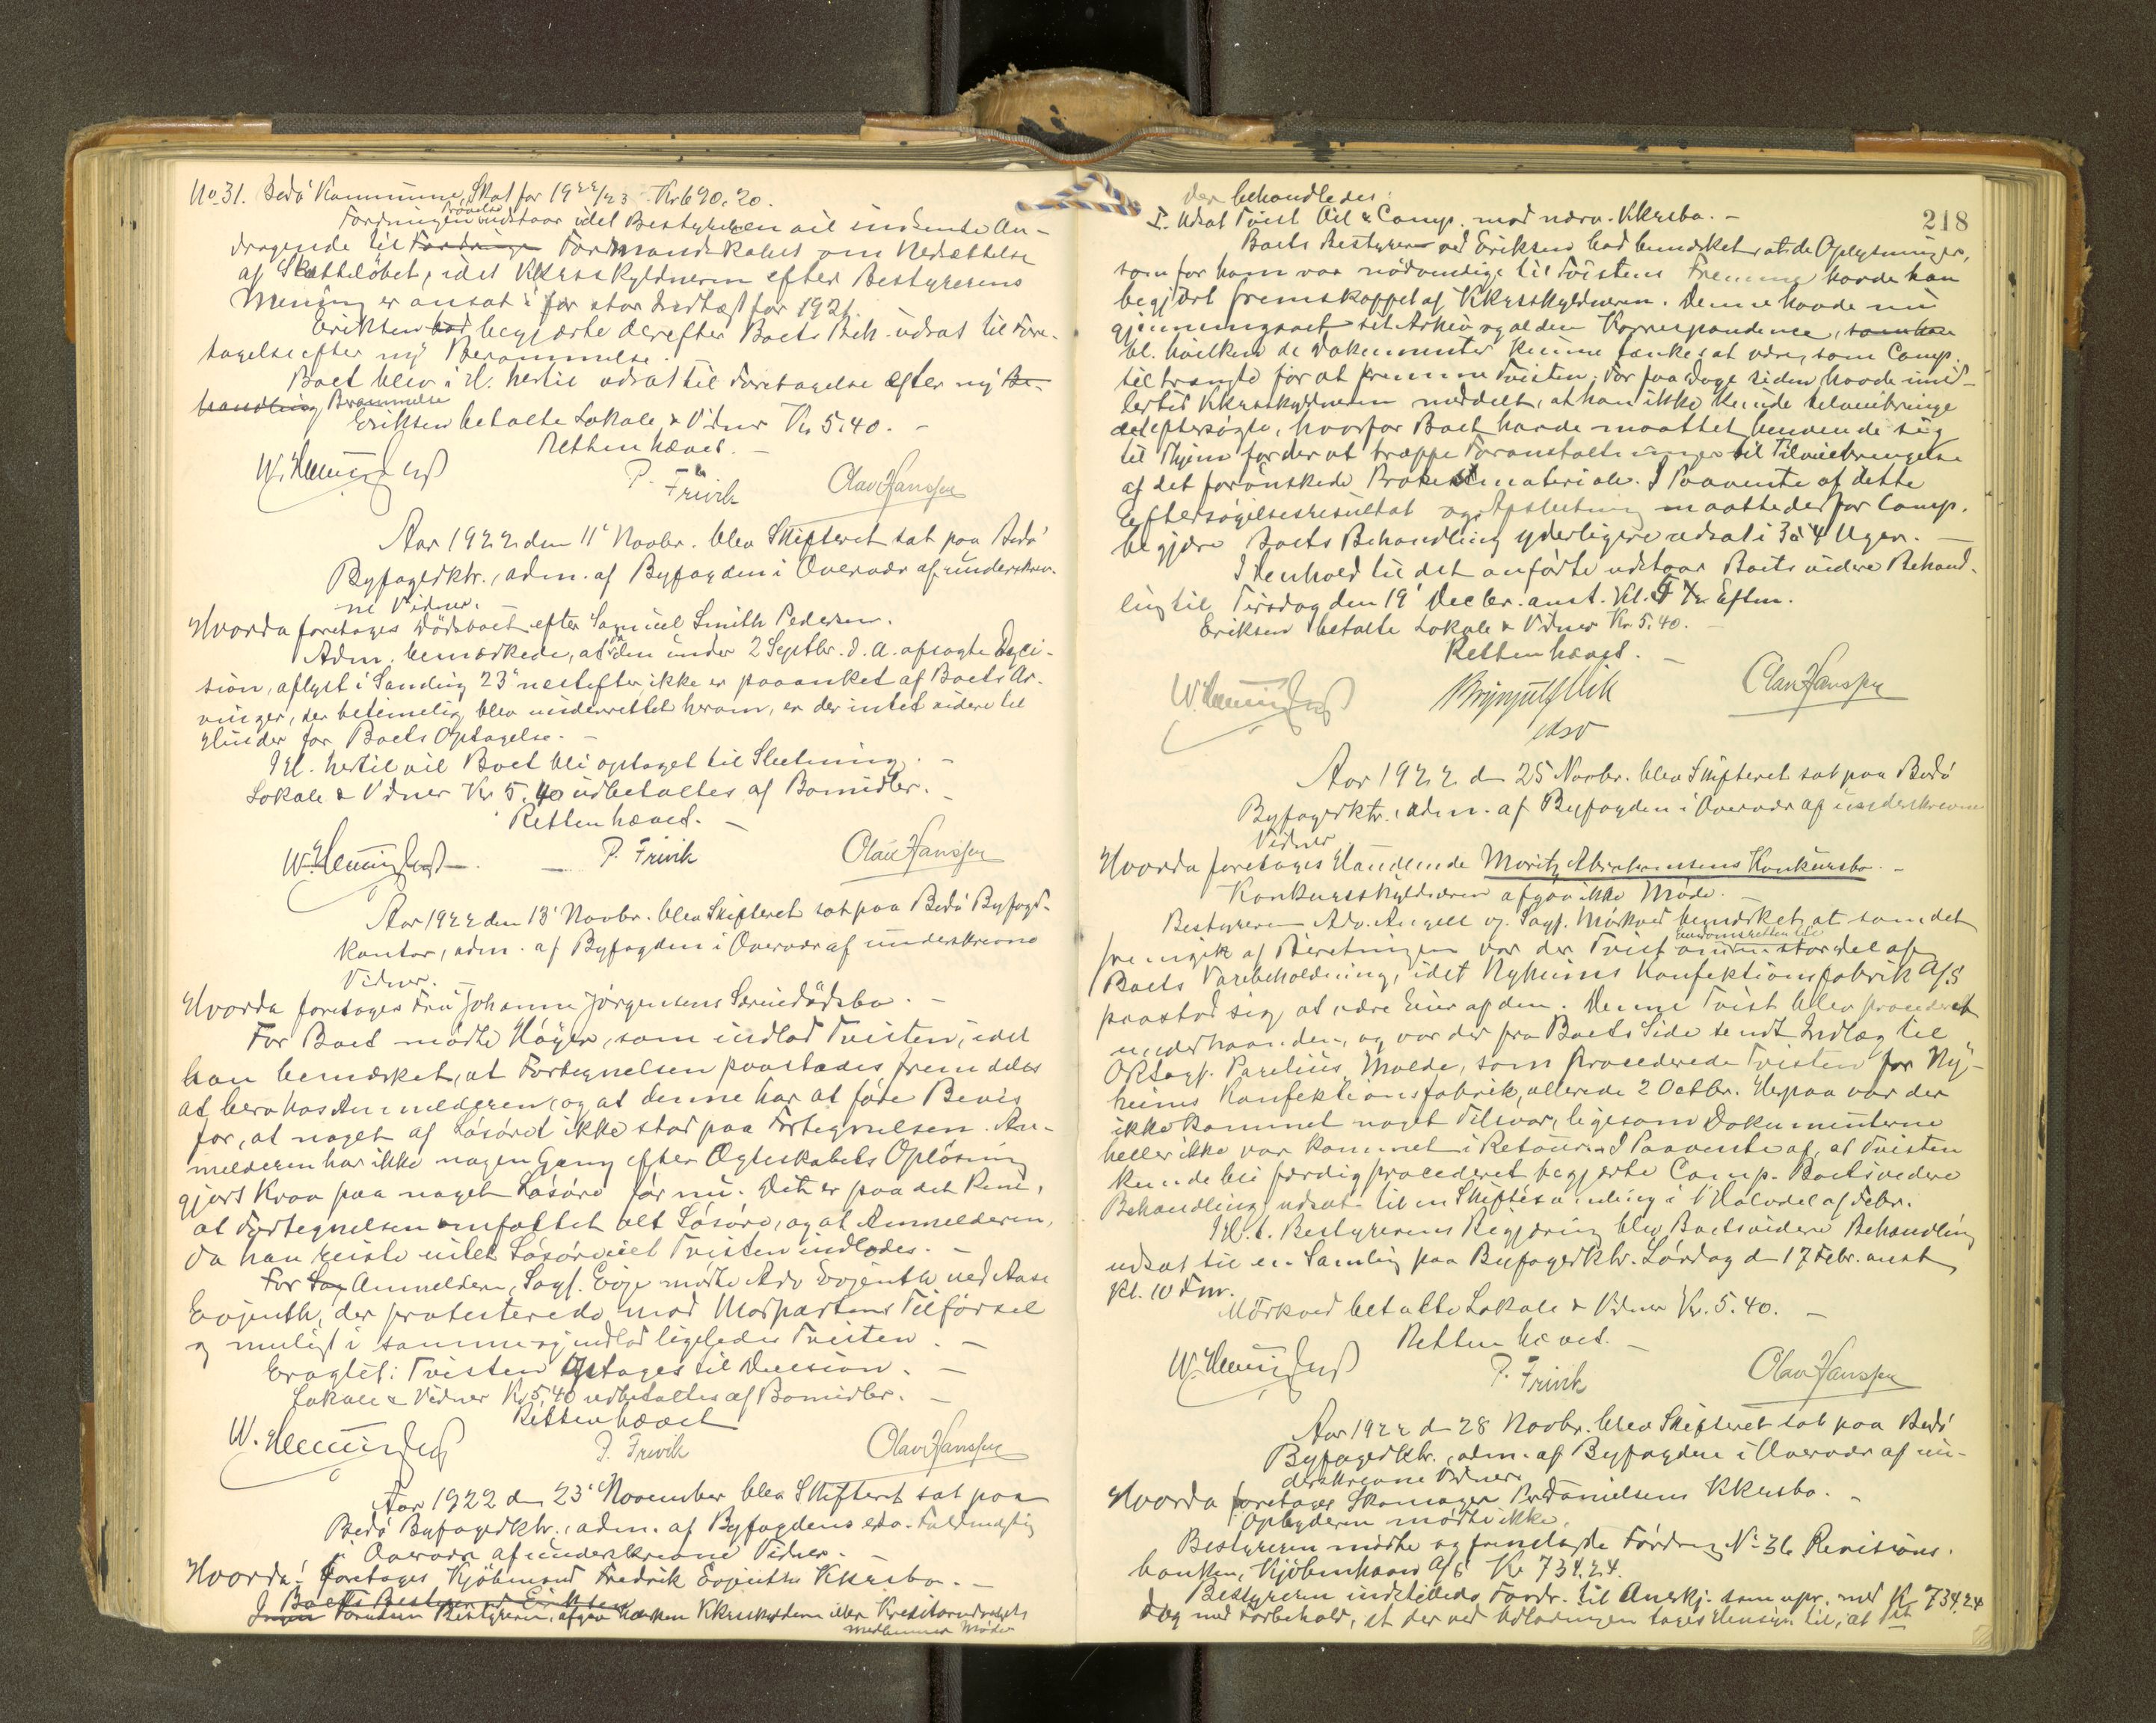 No 31. Bodø Kommune, Skat for 1922/23 Kr 690.20.
Fordringen prøvelse udstaar idet Bestyreren vil indsende An-
dragende til Fordringe Formandskabet om Nedsættelse
af Skattebeløbet, idet Kkursskyldneren efter Bestyrerens
Mening er ansat i for stor Indtægt for 1921.
Eriksen bad begjærte derefter Boets Beh. udsat til Fore-
tagelse efter ny Berammelse.
Boet blev i H. hertil udsat til Foretagelse efter ny Be-
handling Berammelse
Eriksen betalte Lokale & Vidner Kr 5.40. -
Retten hævet. -
P. Frivik Olav Hanssen
Aar 1922 den 11' Novbr. blev Skifteret sat paa Bodø
Byfogedktr., adm. af Byfogden i Overvær af underskrev-
ne Vidner.
Hvorda foretoges Dødsboet efter Samuel Smith Pedersen.
Adm. bemærkede, at da den under 2 Septbr. d. A. afsagte Deci-
sion, aflyst i Samling 23' nestefter, ikke er paaanket af Boets Ar-
vinger, der betimelig blev underrettet herom, er der intet videre til
Hinder for Boets Optagelse. -
I H. hertil vil Boet bli optaget til Slutning. -
Lokale & Vidner Kr 5.40 udbetaltes af Bomidler. -
Retten hævet. -
P. Frivik Olav Hanssen
Aar 1922 den 13' Novbr. blev Skifteret sat paa Bodø Byfogd-
kontor, adm. af Byfogden i Overvær af underskrevne
Vidner. -
Hvorda foretoges Fru Johanna Jørgensens Særeiedødsbo. -
For Boet mødte Høyer, som indlod Tvisten, idet
han bemærket, at Fortegnelsen paastodes fremdeles
at bero hos Anmelderen, og at denne har at føre Bevis
for, at noget af Løsøret ikke stod paa Fortegnelsen. An-
melderen har ikke nogen Gang efter Ægteskabets Opløsning
gjort Krav paa noget Løsøre før nu. Det er paa det Rene,
at Fortegnelsen omfattet alt Løsøre, og at Anmelderen,
da han reiste intet Løsøre Tvisten indlodes. -
For Sag Anmelderen, Sagf. Evje mødte Adv Evjenth ved Aase
Evjenth, der protesterede mod Modpartens Tilførsel
og muligt i samme og indlod ligeledes Tvisten. -
Eragtet: Tvisten optages til Decision. -
Lokale & Vidner Kr 5,40 udbetaltes af Bomidler. -
Retten hævet
P. Frivik Olav Hanssen
Aar 1922 den 23' November blev Skifteret sat paa
Bodø Byfogedktr., adm. af Byfogdens edsv. Fuldmægtig
i Overvær af underskrevne Vidner. -
Hvorda: foretoges Kjøbmand Fredrik Evjenths Kkursbo. -
Boets Bestyrer ved Eriksen
Ingen Foruden Bestyreren, afgav hverken Kkursskyldneren eller Kreditorudvalgets
Medlemmer Møde
218
der behandledes:
I. Udsat Tvist Comp. mod nærv. Kkursbo. -
Boets Bestyrer ved Eriksen bad bemærket, at de Oplysninger,
som for ham var nødvendige til Tvistens Fremme havde han
begjært fremskaffet af Kkursskyldneren. Denne havde nu
gjennemgaaet sit Arkiv og al den Korrespondence, som
bl. hvilken de Dokumenter kunne tænkes at være, som Comp.
tiltrængte for at fremme Tvisten. For faa Dage siden havde imid-
lertid Kkursskyldneren meddelt, at han ikke kunde tilveiebringe
det eftersøgte, hvorfor Boet havde maattet henvende sig
til Thjem for der at træffe Foranstaltninger til Tilveiebringelse
af det forønskede Materiale. I Paavente af dette
Eftersøgelsesresultat og Afslutning maatte derfor Comp.
begjære Boets Behandling yderligere udsat i 3 à 4 Uger. -
I Henhold til det anførte udstaar Boets videre Behand-
ling til Tirsdag den 19' Decbr. anst. Kl. Eftm.
Eriksen betalte Lokale & Vidner Kr. 5.40. -
Retten hævet. -
Brynjulf Vik Olav Hanssen
edsv
Aar 1922 d 25 Novbr. blev Skifteret sat paa Bodø
Byfogedktr., adm. af Byfogden i Overvær af underskrevne
Vidner
Hvorda foretoges Handlende Moritz Abrahamsens Konkursbo. -
Konkursskyldneren afgav ikke Møde. -
Bestyreren Adv. Angell og Sagf. Mørkved bemærket, at som det
fremgik af Beretningen var der Tvist om Eiendomsretten til en stor del af
Boets Varebeholdning, idet Nyheims Konfektionsfabrik A/S
paastod sig at være Eier af den. Denne Tvist blev procederet
underhaanden, og var der fra Boets Side sendt Indlæg til
ORSagf. Parelius, Molde, som procederede Tvisten for Ny-
heims Konfektionsfabrik, allerede 2 Octbr. Herpaa var der
ikke kommet noget Tilsvar, ligesom Dokumenterne
heller ikke var kommet i Retour. I Paavente af, at Tvisten
kunde bli færdig procederet, begjærte Comp. Boets videre
Behandling udsat til en Skiftesamling i 1 Halvdel af Febr.
I H. t. Bestyrerens Begjæring blev Boets videre Behandling
udsat til en Samling paa Byfogedktr. Lørdag d 17 Febr. anst
Kl. 10 Fm.
Mørkved betalte Lokale & Vidner Kr. 5.40. -
Retten hævet. -
P. Frivik Olav Hanssen
Aar 1922 d 28 Novbr. blev Skifteret sat paa Bodø
Byfogedktr., adm. af Byfogden i Overvær af un-
derskrevne Vidner.
Hvorda foretoges Skomager Per Danielsens Kkursbo. -
Opbyderen mødte ikke.
Bestyreren mødte og fremlagde Fordring No 36 Revisions-
banken, Kjøbenhavn A/S Kr 734.24.
Bestyreren indstillede Fordr. til Anerkj. som upr. med Kr 734.24
dog med Forbehold, at der ved Udlodningen tages Hensyn til, at det